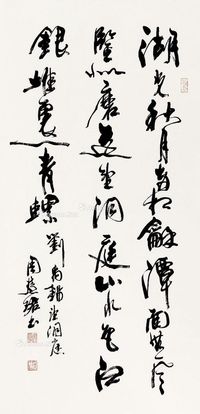 湖光秋月兩相龢潭面無風
磨遙望洞庭山水色白
銀裏一青螺
劉禹錫望洞庭
周慧珺書